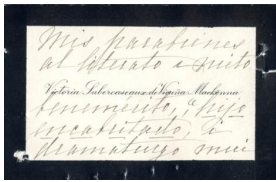 Mis parabienes
al literato e hijo
Victoria Subercaseaux de Vicuña Mackenna
benemérito, "hijo
incapitado, i
dramaturgo mui